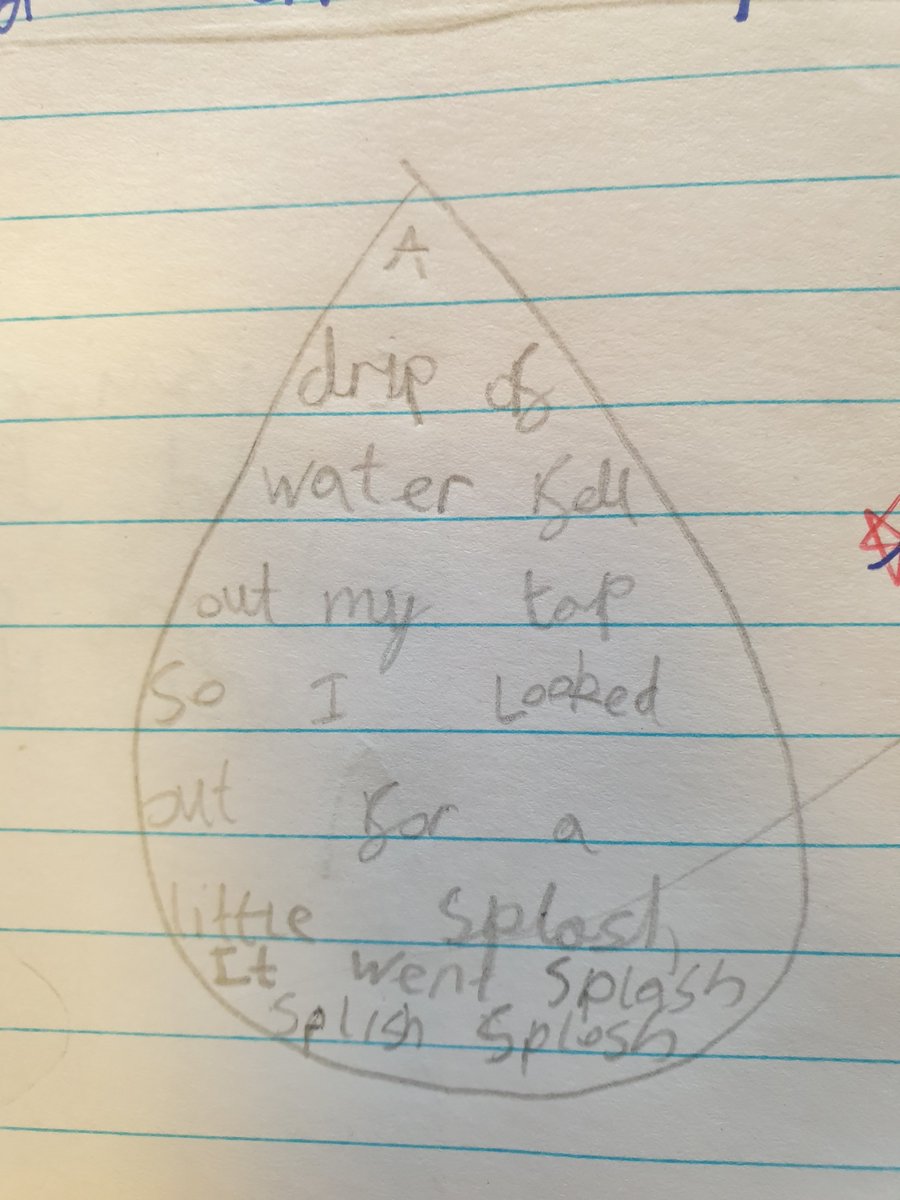 A
drip of
water fell
out my tap
So I Looked
out for a
little Splash
It went Splash
Splish Splosh